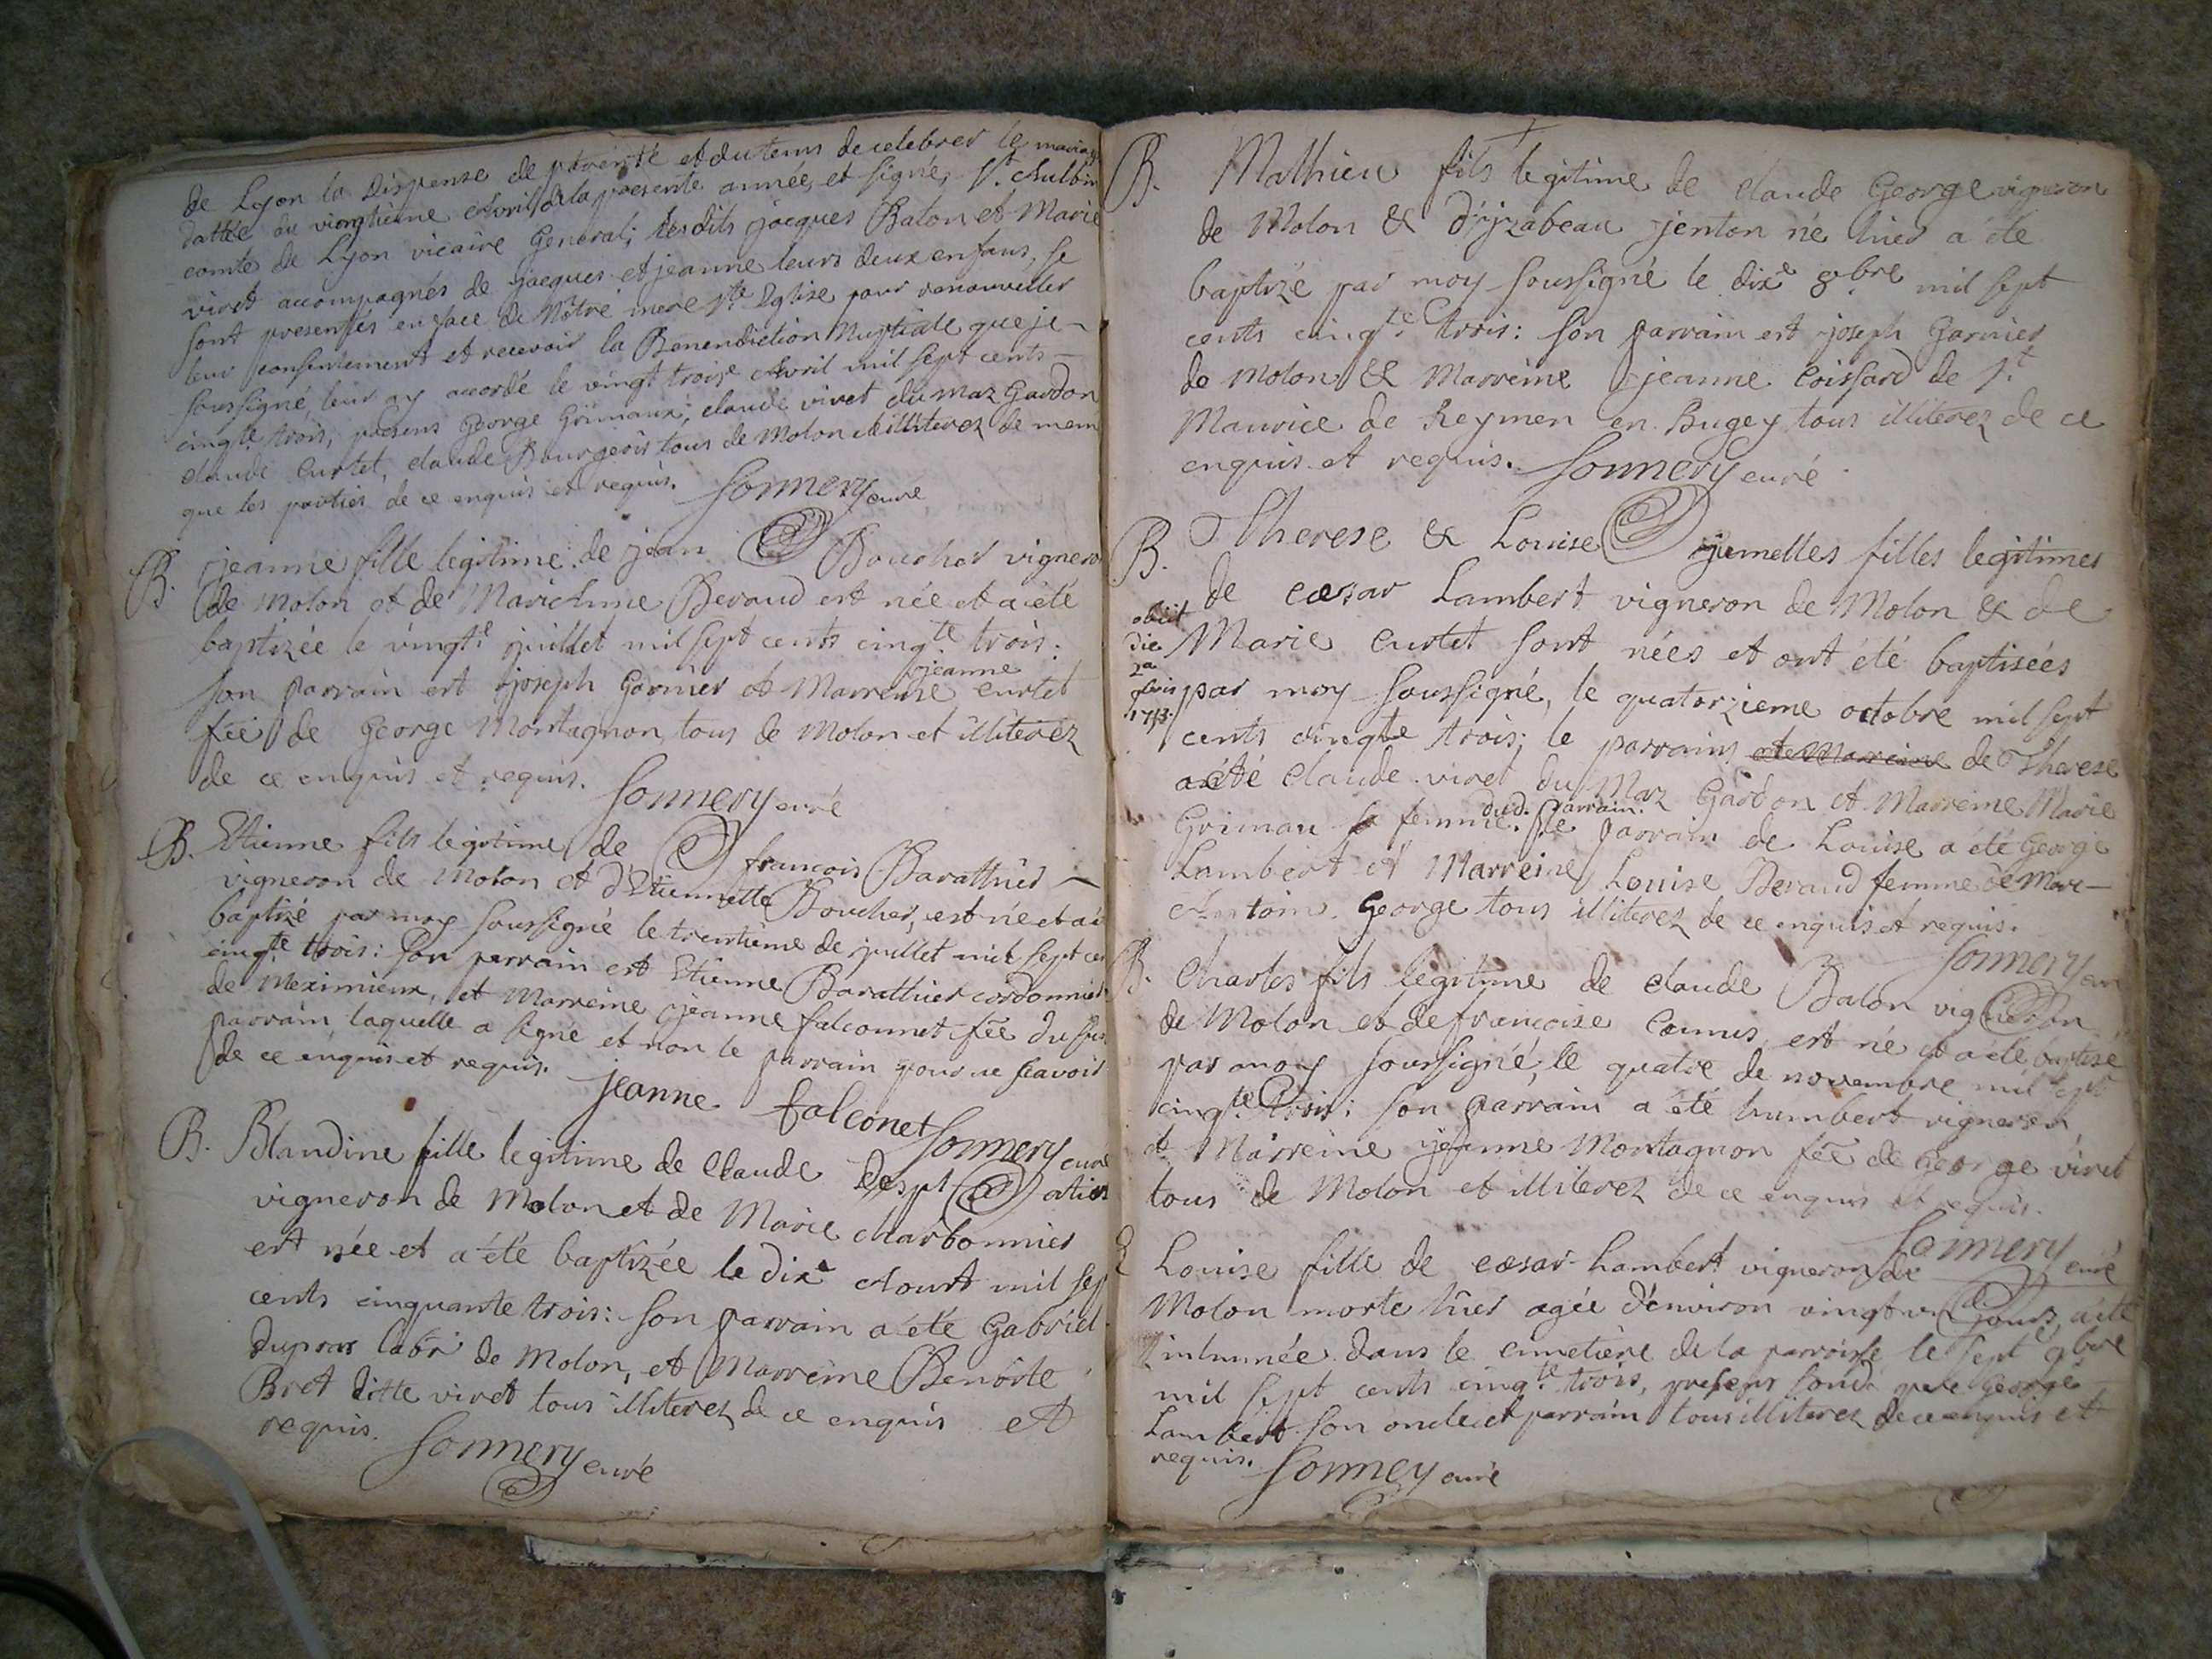 de Lyon la Dispense de parenté et du tems de celebrer le mariage
dattée du vingtieme Avril de la presente année, et signé, St. Aulbin
comte de Lyon vicaire General; lesdits jacques Balon et Marie
viret accompagnés de jacques et jeanne leurs deux enfans, se
sont presentés en face de Nôtre mere Ste Eglise pour renouveller
leur consentement et recevoir la Benendiction Nuptiale que je
soussigné leur ay accordé le vingt troise Avril mil sept cents
cinqte trois, presens George Grimaux, claude viret du maz Gardon
claude Curtet, claude Bourgeois tous de Molon illiterez de mem
que les parties de ce enquis et requis. Sonnery curé
B. jeanne fille legitime de jean Boucher vigneron
de Molon et de Marie Beraud est née et a été
baptizée le vingte juillet mil sept cents cinqte trois:
jeanne
son parrain est joseph Garnier et Marreine Curtet
fée de George Montagnon tous de Molon et illiterez
de ce enquis et requis. Sonnery curé
B. Etienne fils legitime de francois Barathier
vigneron de Molon et d'Etiennette Boucher, est né et a é
baptizé par moy soussigné le trentieme de juillet mil sept cen
cinqte trois: son parrain est Etienne Barathier cordonnier
de Meximieux, et Marreine jeanne falconnet fée du sus
parrain laquelle a signé et non le parrain pour ne scavoir
de ce enquis et requis.
jeanne falconet Sonnery curé
B. Blandine fille legitime de Claude Desplatier
vigneron de Molon et de Marie charbonnier
est née et a été baptizée le dixe Aoust mil sep
cents cinquante trois: son parrain a été Gabriel
Dupras labr de Molon, et Marreine Benoîte
Bret ditte viret tous illiterez de ce enquis et
requis. Sonnery curé
B. Mathieu fils legitime de claude George vigneron
de Molon & d'jzabeau jenton né hier a été
baptizé par moy soussigné le dixe 8bre mil sept
cents cinqte trois: son parrain est joseph Garnier
de Molon & Marreine jeanne Coissard de St
Maurice de Reymen en Bugey tous illiterez de ce
enquis et requis. Sonnery curé
B. Therese & Louise jumelles filles legitimes
de cæsar Lambert vigneron de Molon & de
obiit
die
7a
9bris
1753.
Marie Curtet sont nées et ont été baptisées
par moy soussigné, le quatorzieme octobre mil sept
cents cinqte trois; le parrains et Marreine de Therese
a été claude viret du Maz Gardon et Marreine Marie
dud. parrain.
Grimau sa femme. le parrain de Louise a été George
Lambert et Marreine Louise Beraud femme de Marc-
Antoine George tous illiterez de ce enquis et requis.
Sonnery curé
B. Charles fils legitime de claude Balon vigneron
de Molon et de francoise Camus, est né et a été baptisé
par moy soussigné, le quatre de novembre mil sept
cinqte trois: son parrain a été humbert vigneron
et Marreine jeanne Montagnon fée de George viret
tous de Molon et illiterez de ce enquis et requis.
Sonnery curé
Louise fille de cæsar Lambert vigneron de
Molon morte hier agée d'environ vingt jours, a été
inhumée dans le cimetière de la parroisse le septe 9bre
mil sept cents cinqte trois, presens sond. pere George
Lambert son oncle et parrain tous illiterez de ce enquis et
requis. Sonney curé